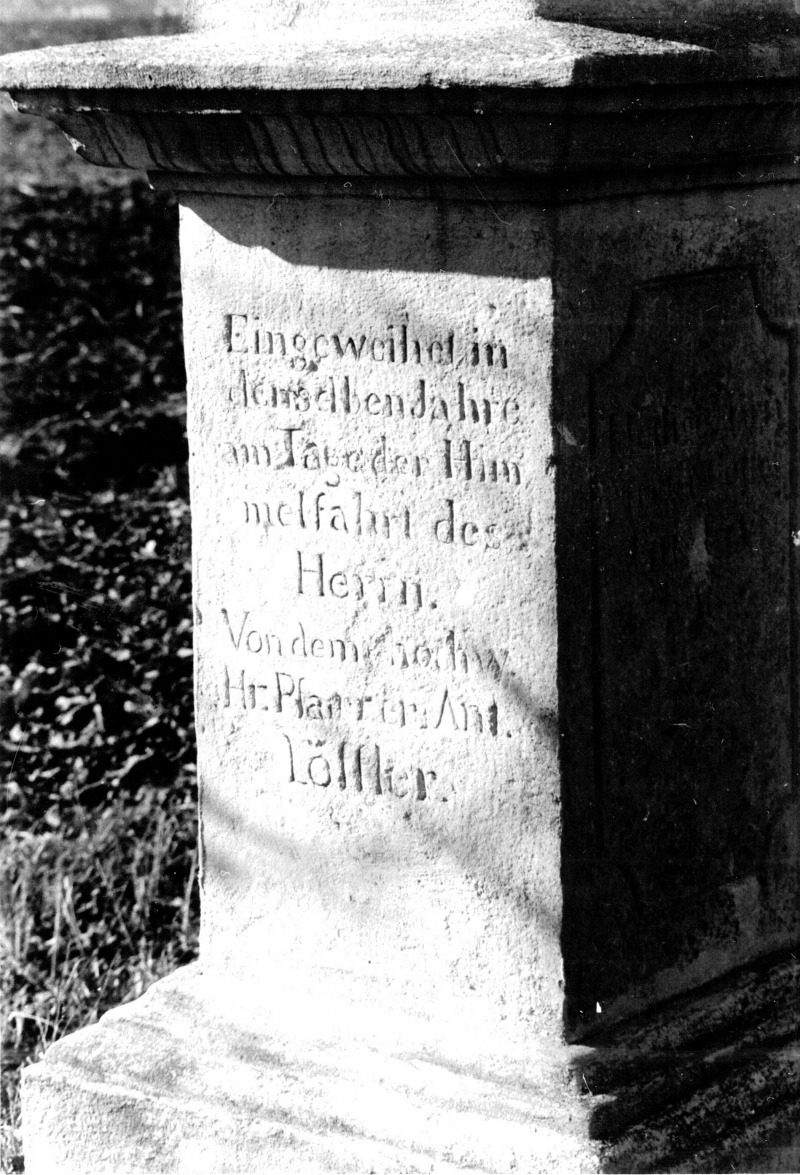 Eingeweihet in
demselben Jahre
am Tage der Him
melfahrt des
Herrn.
Von dem hochw.
Hr. Pfarrer. Ant.
Löffler.